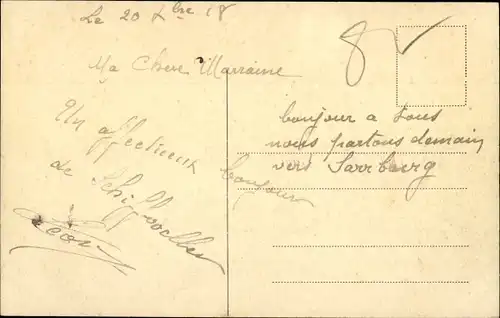 Le 20 Xbre 18
Ma Chere Marraine
Un affectueux bonjour
de
bonjour a tous
nous partons demain
vers Sarrbourg